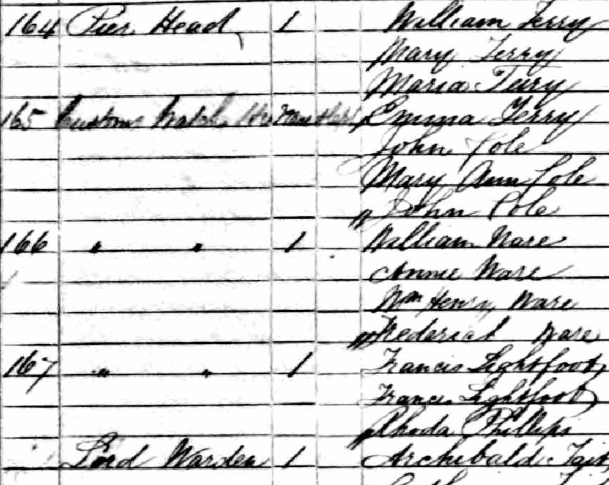 164 Pier Head 1 William Terry
Mary Terry
Maria Terry
165 Customs Watch Emma Terry
John Cole
Mary Ann Cole
" John Cole
166 " " 1 William Ware
Annie Ware
Wm Henry Ware
" Frederick Ware
167 " " 1 Francis Lightfoot
Frances Lightfoot
" Rhoda Phillips
Lord Warden 1 Archibald Tait